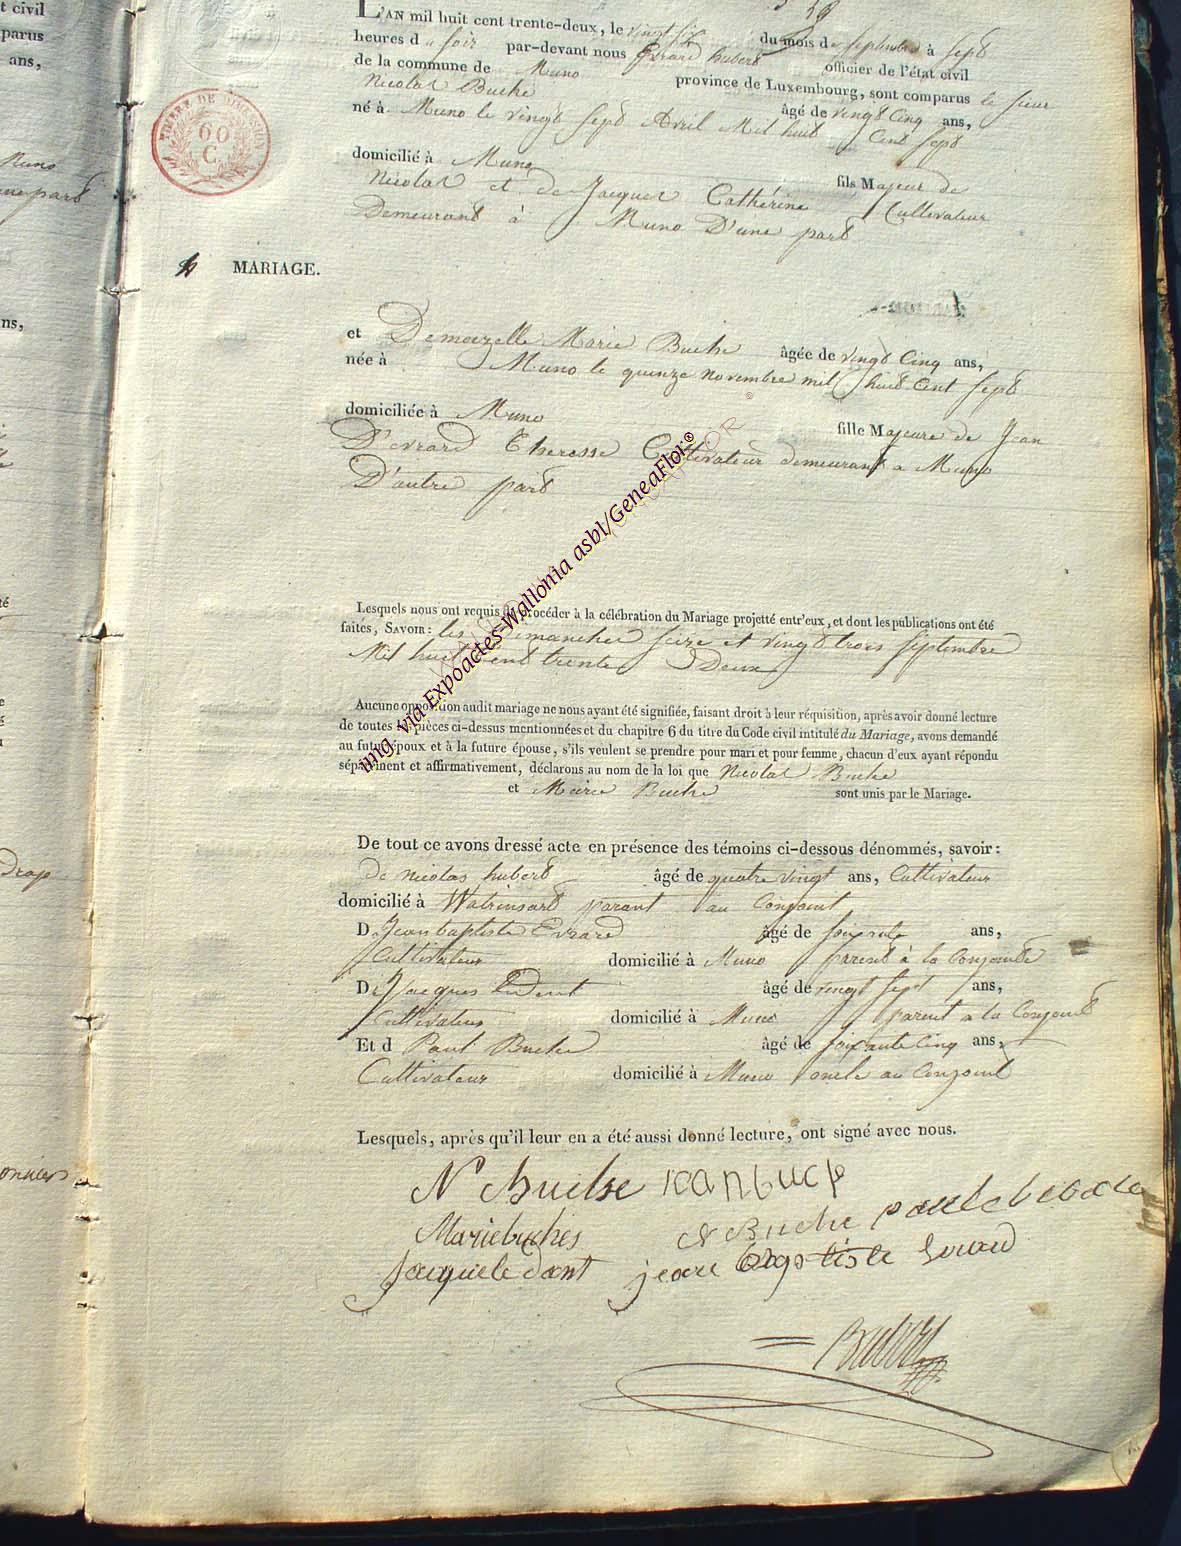 t civil
parus
ans,
Muno
une part
ns,
té
é
Drap
L'AN mil huit cent trente-deux, le vingt six du mois de Septembre à Sept
heures du soir par-devant nous Evrard hubert officier de l'état civil
de la commune de Muno province de Luxembourg, sont comparus le sieur
Nicolas Buche âgé de vingt Cinq ans,
né à Muno le vingt Sept Avril Mil huit Cent Sept
TIMBRE DE DIMENSION
60
C.
domicilié à Muno fils Majeur de
Nicolas et de Jacquet Cathérine Cultivateur
Demeurant à Muno D'une part
MARIAGE.
et Demoizelle Marie Buche âgée de vingt Cinq ans,
née à Muno le quinze novembre mil huit cent Sept
domiciliée à Muno fille Majeure de Jean
D'evrard Theresse Cultivateur demeurant a Muno
D'autre part
Lesquels nous ont requis de procéder à la célébration du Mariage projetté entr'eux, et dont les publications ont été
faites, SAVOIR: les Dimanches seize et vingt trois Septembre
Mil huit Cent trente Deux
Aucune opposition audit mariage ne nous ayant été signifiée, faisant droit à leur réquisition, après avoir donné lecture
de toutes les pièces ci-dessus mentionnées et du chapitre 6 du titre du Code civil intitulé du Mariage, avons demandé
au futur époux et à la future épouse, s'ils veulent se prendre pour mari et pour femme, chacun d'eux ayant répondu
séparément et affirmativement, déclarons au nom de la loi que Nicolas Buche
et Marie Buche sont unis par le Mariage.
De tout ce avons dressé acte en présence des témoins ci-dessous dénommés, savoir:
De nicolas hubert âgé de quatre vingt ans, Cultivateur
domicilié à Watrinsart parant au Conjoint
D Jean baptiste Evrard âgé de soixante ans,
Cultivateur domicilié à Muno parent à la Conjointe
De Jacques Ledent âgé de vingt sept ans,
Cultivateur domicilié à Muno parent a la Conjoint
Et d Paul Buche âgé de soixante Cinq ans,
Cultivateur domicilié à Muno oncle au Conjoint
Lesquels, après qu'il leur en a été aussi donné lecture, ont signé avec nous.
N Buche jean buche
Marie buches N Buche
jacque le dant jean baptiste Evrard
img. via Expoactes-Wallonia asbl/GeneaFlor©